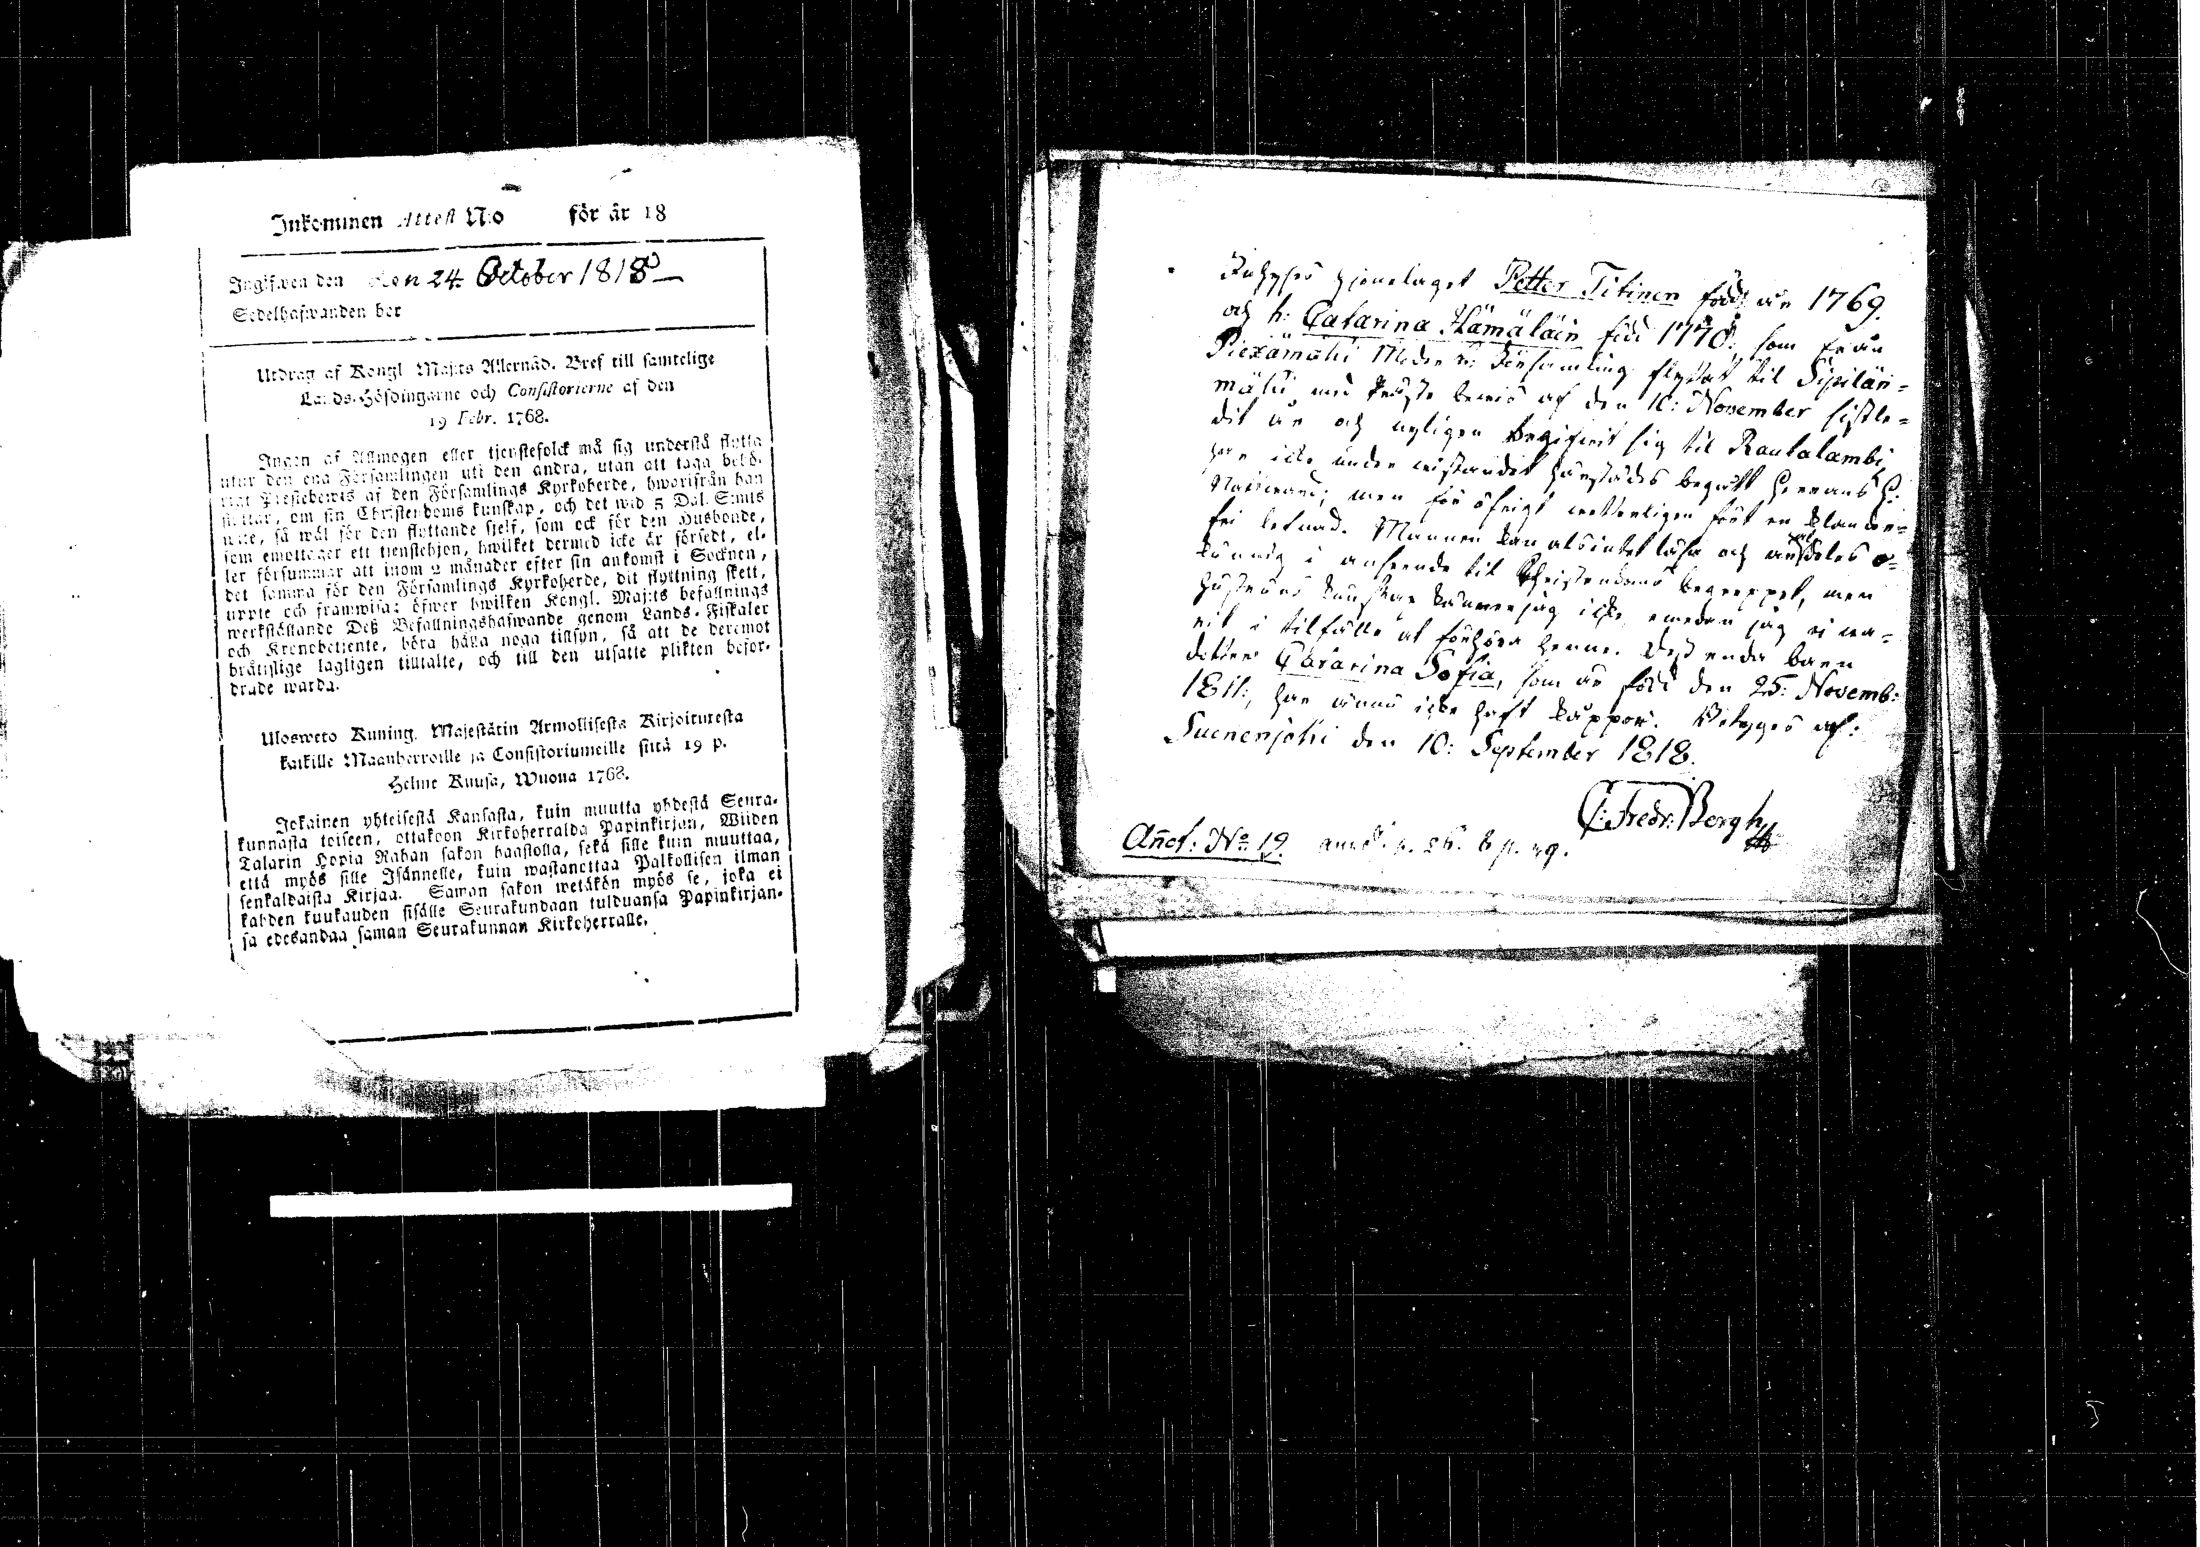 Inkommen Attest N:o för år 18
Ingifwen den den 24. October 1818
Sedelhafwanden ber
Utdrag af Kongl Maj:ts Allernåd. Bref till samtelige
Lands-Höfdingarne och Consistorierne af den
19 Febr. 1768.
Ingen af Allmogen eller tjenstefolck må sig understå flytta
utur den ena Församlingen uti den andra, utan att taga behö-
rigt Prestebewis af den Församlings Kyrkoherde, hworifrån han
flyttar, om sin Christendoms kunskap, och det wid 5 Dal. S:mts
wite, så wäl för den flyttande sjelf, som ock för den Husbonde,
som emottager ett tjenstehjon, hwilket dermed icke är försedt, el-
ler försummar att inom 2 månader efter sin ankomst i Socknen,
det samma för den Församlings Kyrkoherde, dit flyttning skett,
uppte och framwisa: öfwer hwilken Kongl. Maj:ts befallnings
werkställande Deß Befallningshafwande genom Lands-Fiskaler
och Kronobetjente, böra hålla noga tillsyn, så att de deremot
brättslige lagligen tilltalte, och till den utsatte plikten befor-
drade warda.
Ulosweto Kuning. Majestätin Armollisesta Kirjoituresta
kaikille Maanherroille ja Consistoriumeille siitä 19 p.
Helme Kuusa, Wuona 1768.
Jokainen yhteisestä Kansasta, kuin muutta yhdestä Seura-
kunnasta toiseen, ottakoon Kirkoherralda Papinkirjan, Wiiden
Talarin Hopia Rahan sakon haastolla, sekä sille kuin muuttaa,
että myös sille Isännelle, kuin wastanottaa Palkollisen ilman
senkaldaista Kirjaa. Saman sakon wetäkön myös se, joka ei
kahden kuukauden sisälle Seurakundaan tulduansa Papinkirjan-
sa edesandaa saman Seurakunnan Kirkoherralle.
hjonelaget Petter Titinen född år 1769.
och h: Catarina Hämäläin född 1770: som från
Piexämähi Moder Församling flyttat til Sipilän-
mäki med Präste bewis af den 16: November sistle-
dit år och nyligen begifwit sig til Rautalambi,
har icke under wistandet härstädes begått Herrans H:
Nattward; men för öfrigt wetterligen fört en klander-
fri lefnad. Mannen kan alsintet läsa och är aldeles o-
kunnig i anseende til Christendoms begreppet, men
hustruns kunskap känner jag icke, emedan jag ej wa-
rit i tilfälle at förhöra henne. Dess enda barn
dottren Catarina Sofia, som är född den 25: Novemb:
1811:, har ännu icke haft kåppor. Betyges af:
Suenenjoki den 10: September 1818.
C: Fredr: Bergh
Anct: No 19.